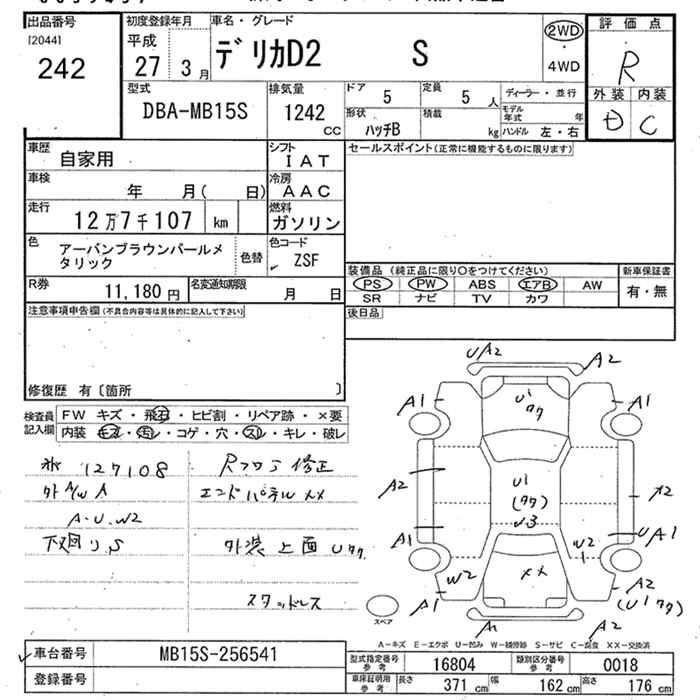 出品番号
[2044]
242
初度登録年月
平成
27 3月
車名・グレード
デリカD2 S
2WD
・
4WD
評価点
R
外装 内装
D C
型式
DBA-MB15S
排気量
1242
CC
ドア
5
定員
5 人
ディーラー・並行
形状
ハッチB
積載
kg
モデル年式 年
ハンドル 左・右
車歴
自家用
シフト
IAT
セールスポイント(正常に機能するものに限ります)
車検
年 月( 日)
冷房
AAC
走行
12万7千107 km
燃料
ガソリン
色
アーバンブラウンパールメタリック
色替
色コード
ZSF
R券
11,180円
名変通知期限
月 日
装備品 (純正品に限り○をつけてください)
PS PW ABS エアB AW
SR ナビ TV カワ
新車保証書
有・無
後日品
注意事項申告欄(不具合内容等は具体的に記入して下さい)
修復歴 有〔箇所 〕
検査員記入欄
FW キズ・飛石・ヒビ割・リペア跡・×要
内装 キズ・汚レ・コゲ・穴・スレ・キレ・破レ
127108
Rフロア修正
外 A/W A
エンドパネル XX
A・U・W2
下廻り S
外装上面 Uタク
スタッドレス
UA2
A2
A1
U1
タク
A1
A2
U1
(タク)
U3
A2
A1
W2
1
UA1
W2
XX
A2
(U1タク)
A1
A1
A2
スペア
A-キズ E-エクボ U-凹み W-補修跡 S-サビ C-腐食 XX-交換済
車台番号
MB15S-256541
登録番号
型式指定番号
参考
16804
類別区分番号
参考
0018
車庫証明用
参考
長さ
371 cm
幅
162 cm
高さ
176 cm